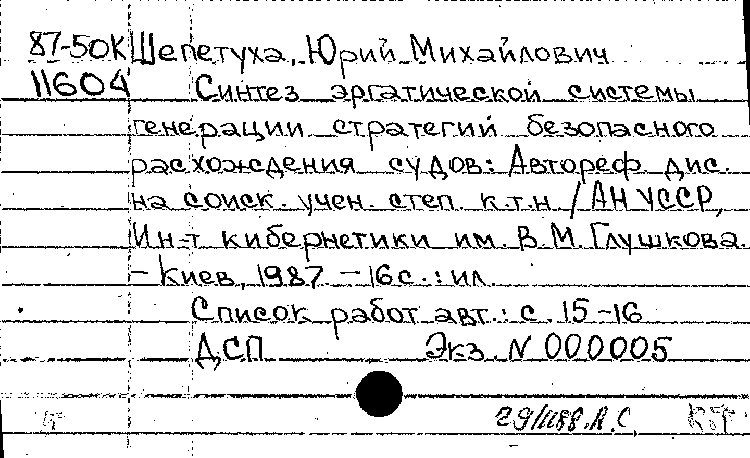 87-50К Шепетуха, Юрий Михайлович
11604 Синтез эргатической системы
генерации стратегий безопасного
расхождения судов: Автореф. дис.
на соиск. учен. степ. к.т.н / АН УССР,
Ин-т кибернетики им. В.М. Глушкова.
- Киев, 1987. - 16 с.: ил.
Список работ авт.: с. 15-16
ДСП Экз. N 000005